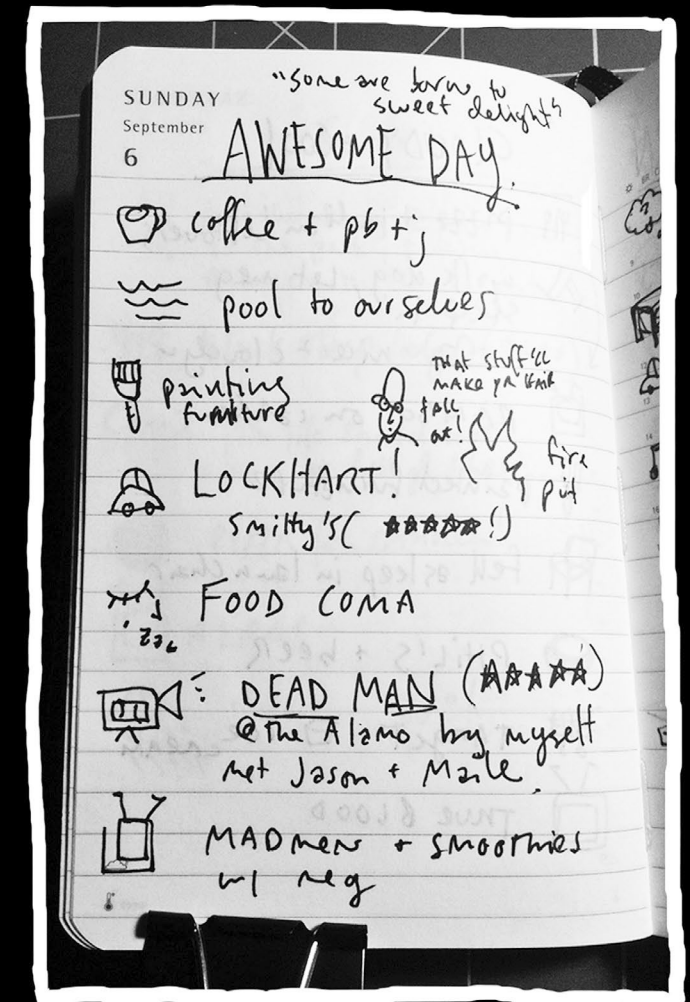 SUNDAY
September
6
"some are born to
sweet delight"
AWESOME DAY.
coffee + pb+j
pool to ourselves
painting
furniture
THAT STUFF'LL
MAKE YR HAIR
fall
out!
LOCKHART!
fire
pit
Smitty's ( ★★★★★!)
zzz
FOOD COMA
DEAD MAN (★★★★★)
@ The Alamo by myself
met Jason + Maile.
MADmen + smoothies
w/ meg